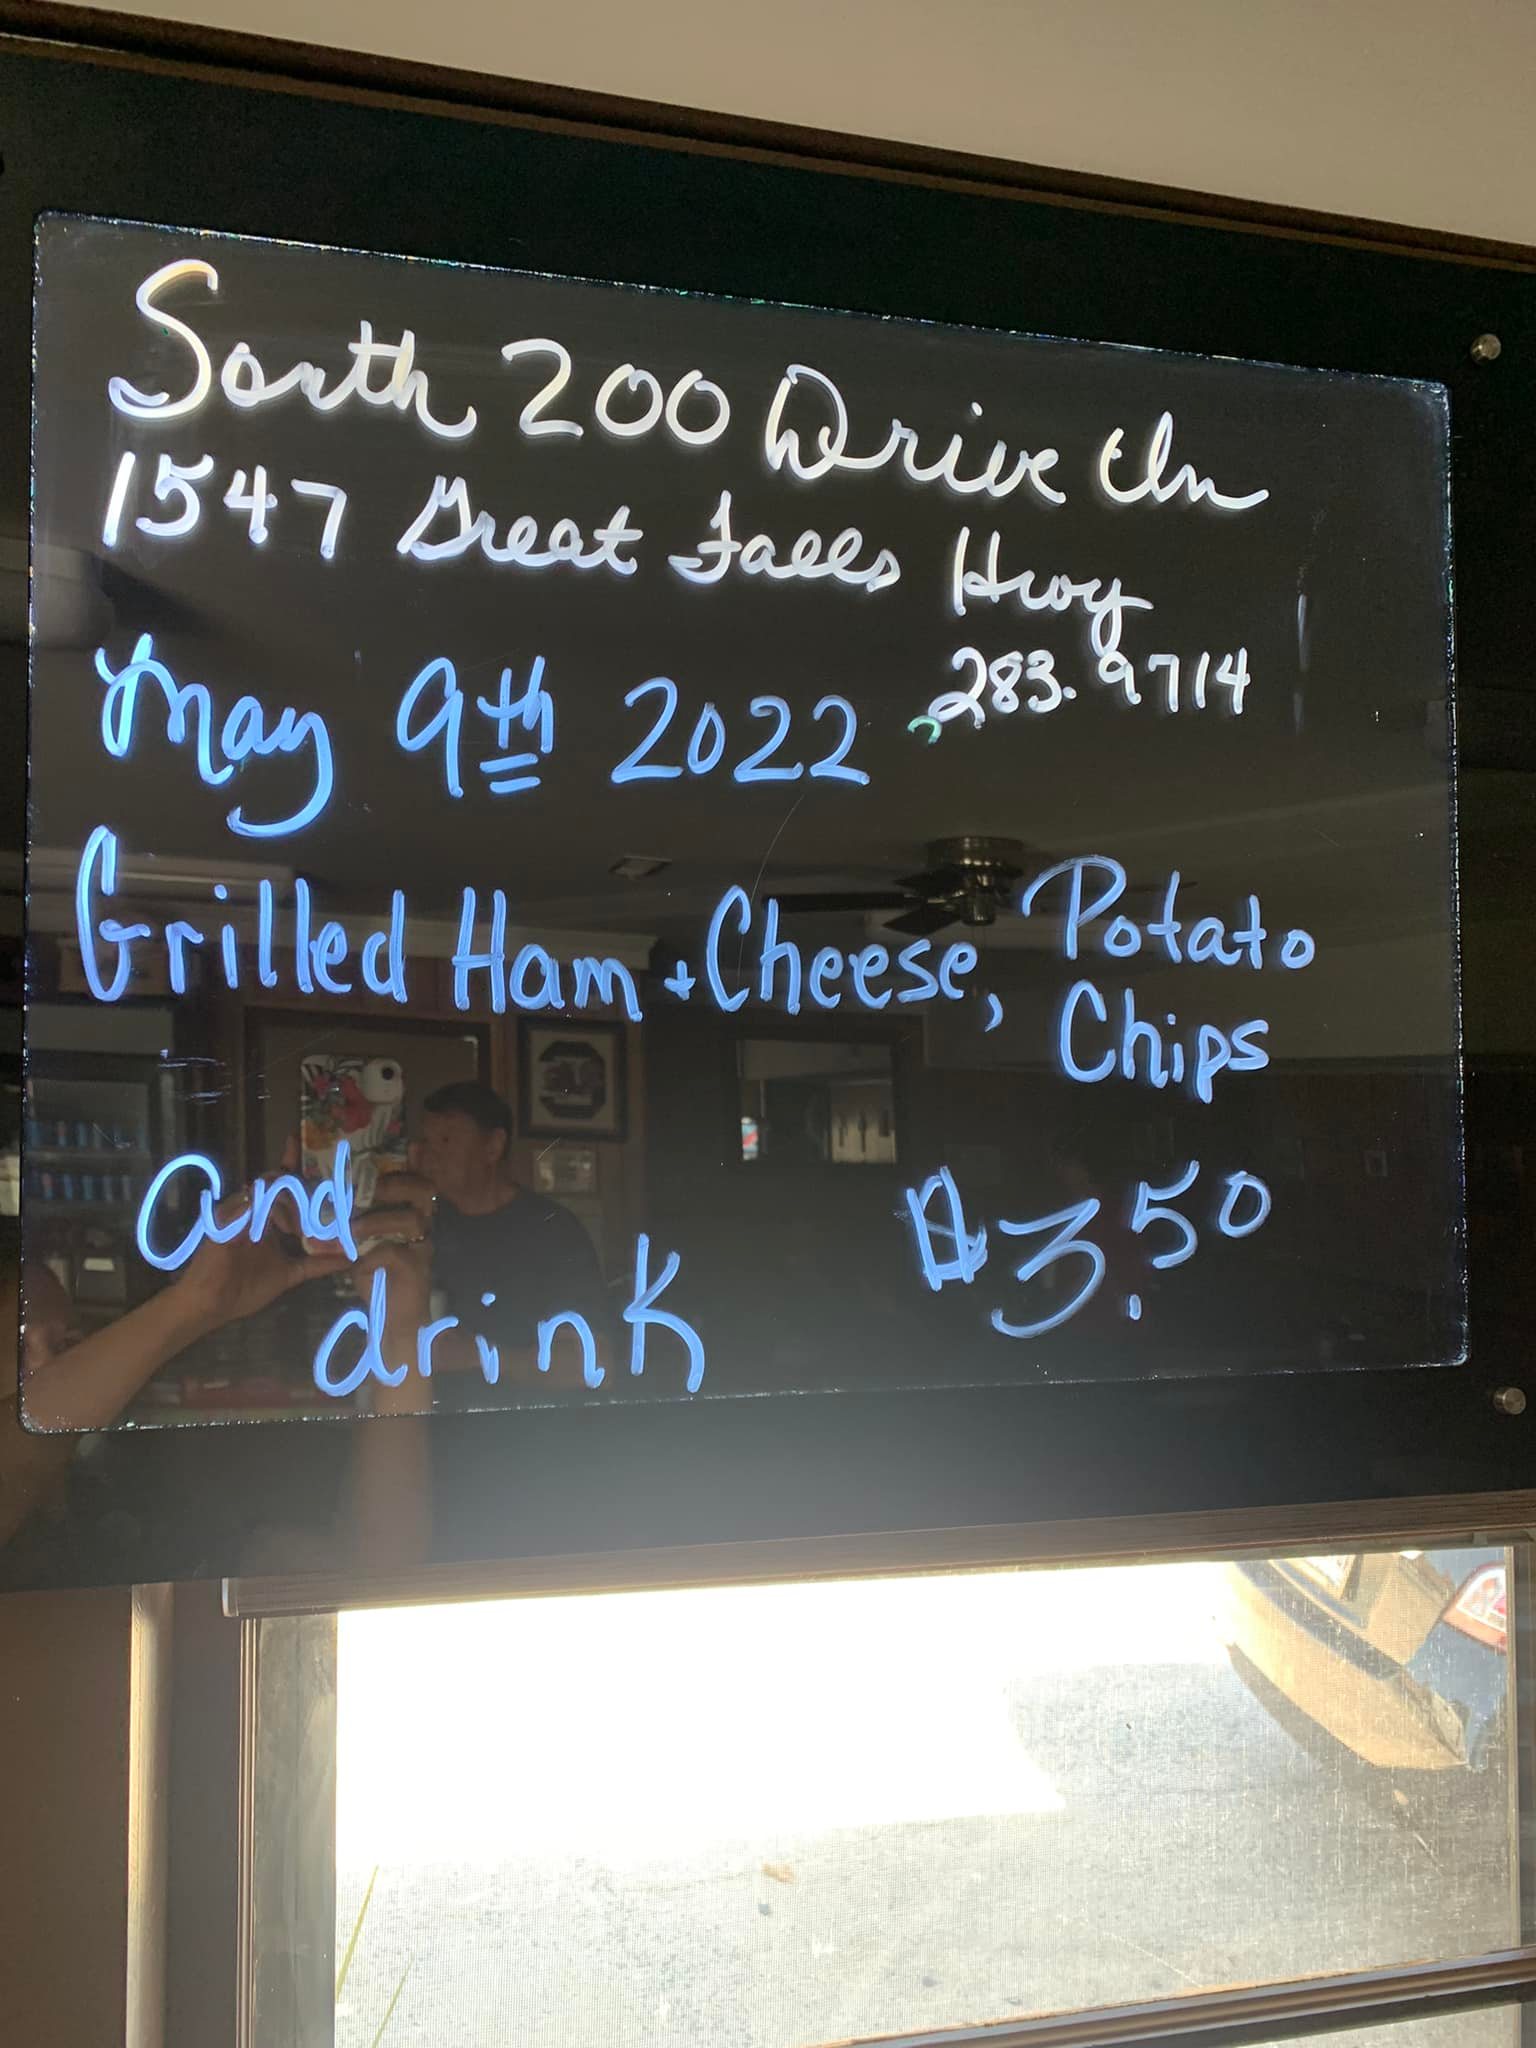 South 200 Drive In
1547 Great Falls Hwy
283.9714
May 9th 2022
Grilled Ham + Cheese, Potato
Chips
and
drink
$3.50